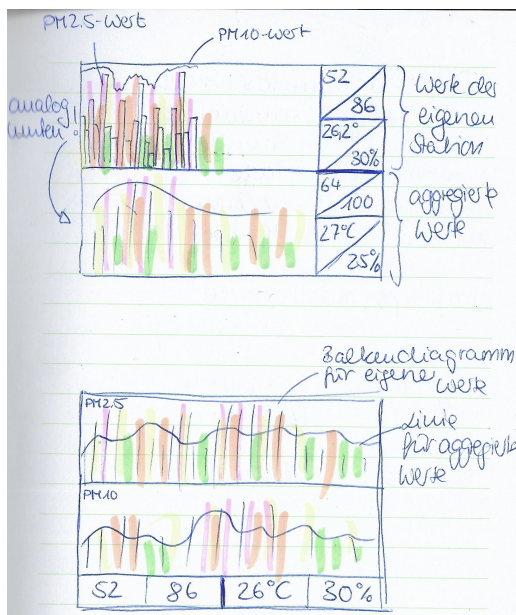 PM2.5-Wert
PM10-Wert
analog
unten!
52
86
26,2°
30%
Werte der
eigenen
Station
64
100
27°C
25%
aggregierte
Werte
Balkendiagramm
für eigene
Werte
PM2.5
Linie
für aggregierte
Werte
PM10
52
86
26°C
30%